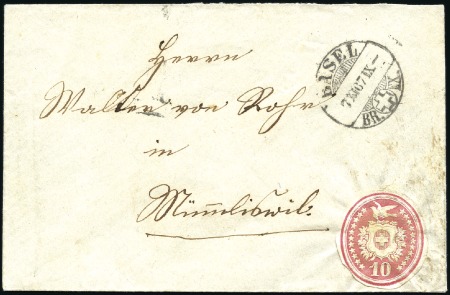 Herrn
Walter von Rohr
in
Mümliswil.
BASEL
BR. EXP.
10